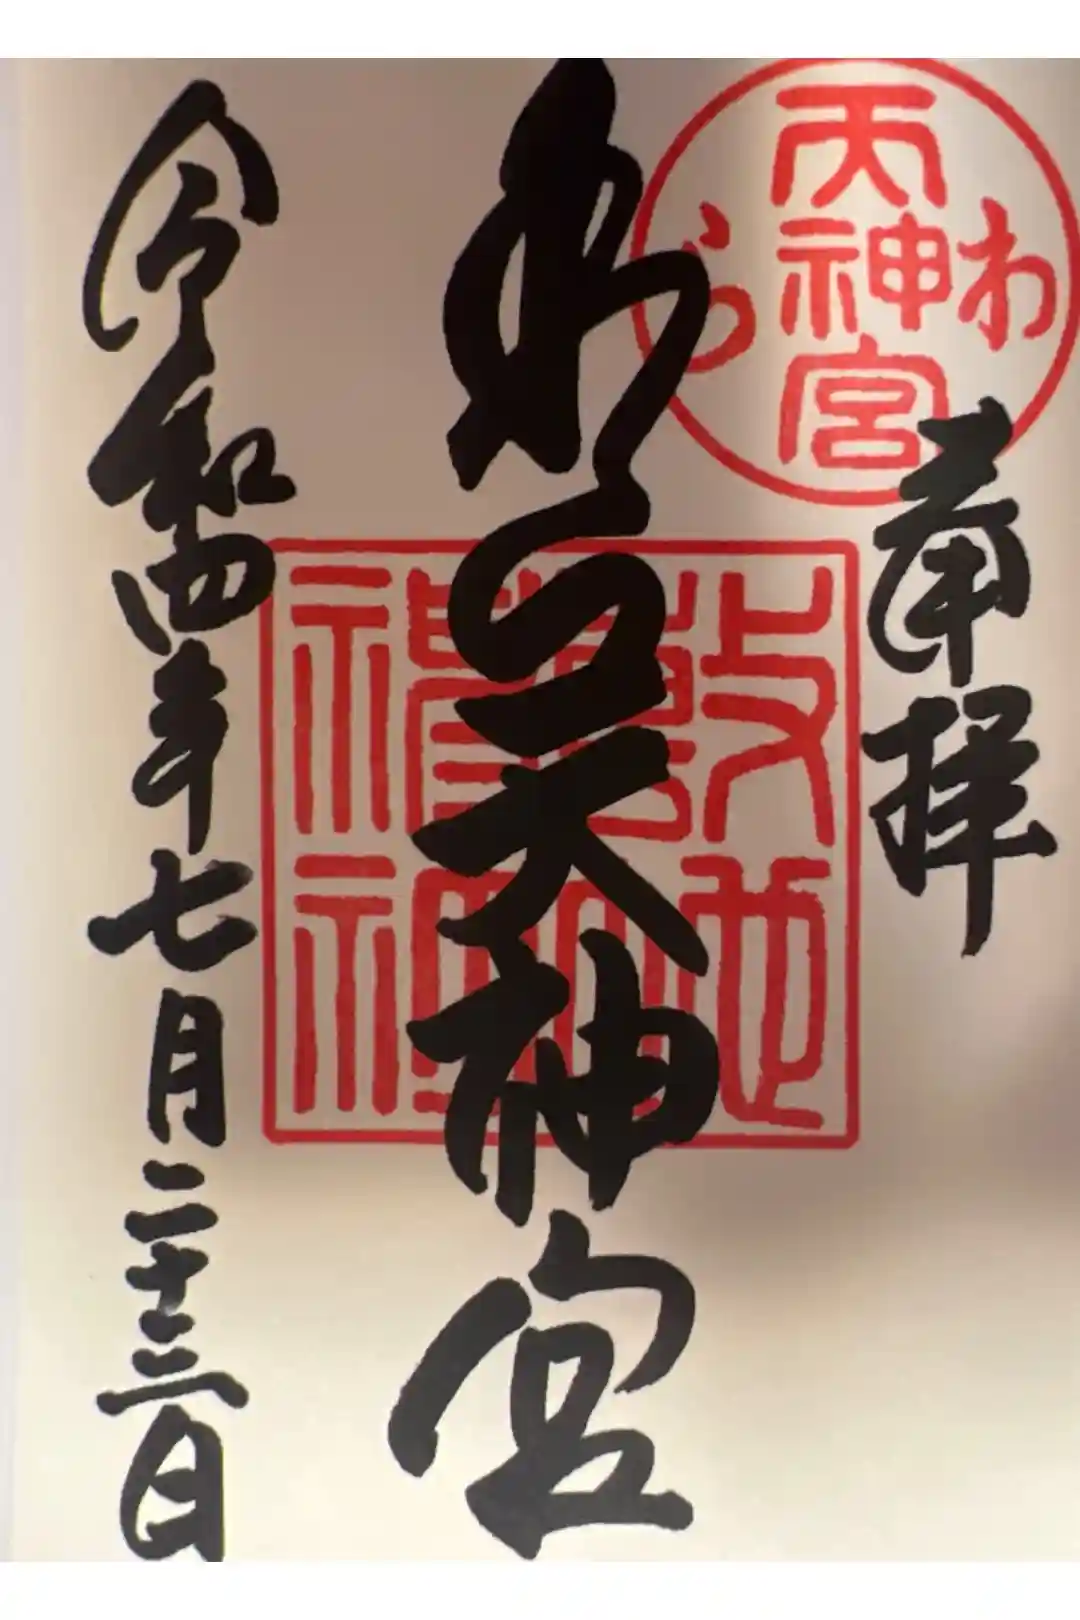 奉拝
わら
天神宮
わら天神宮
敷地
令和四年七月二十三日